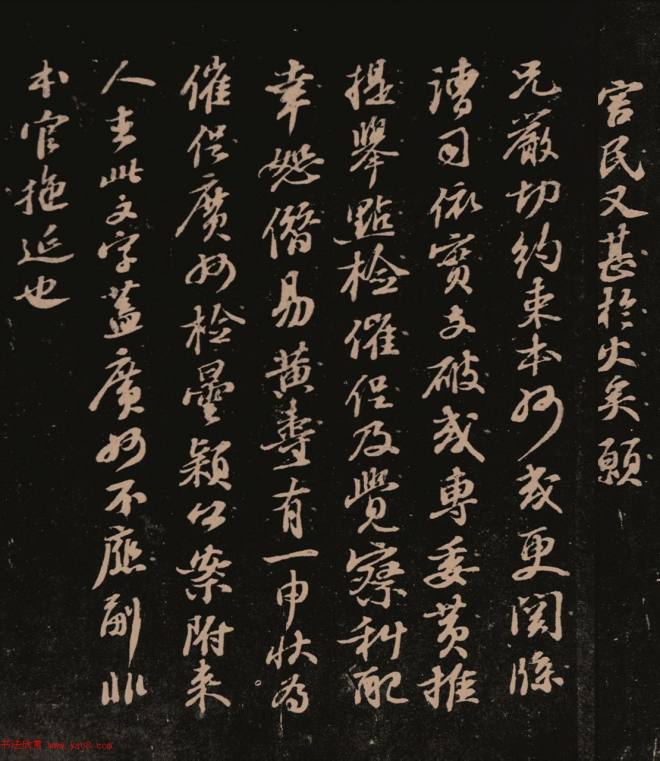 害民又甚於火矣願
兄嚴切約束本州或更関牒
漕司依實支破或專委黄推
提舉點檢催促及覺察科配
幸恕僭易黄燾有一申狀為
催促廣州檢曇穎公案附來
人去此文字蓋廣州不應副非
本官拖延也
书法欣赏 www.yac8.com